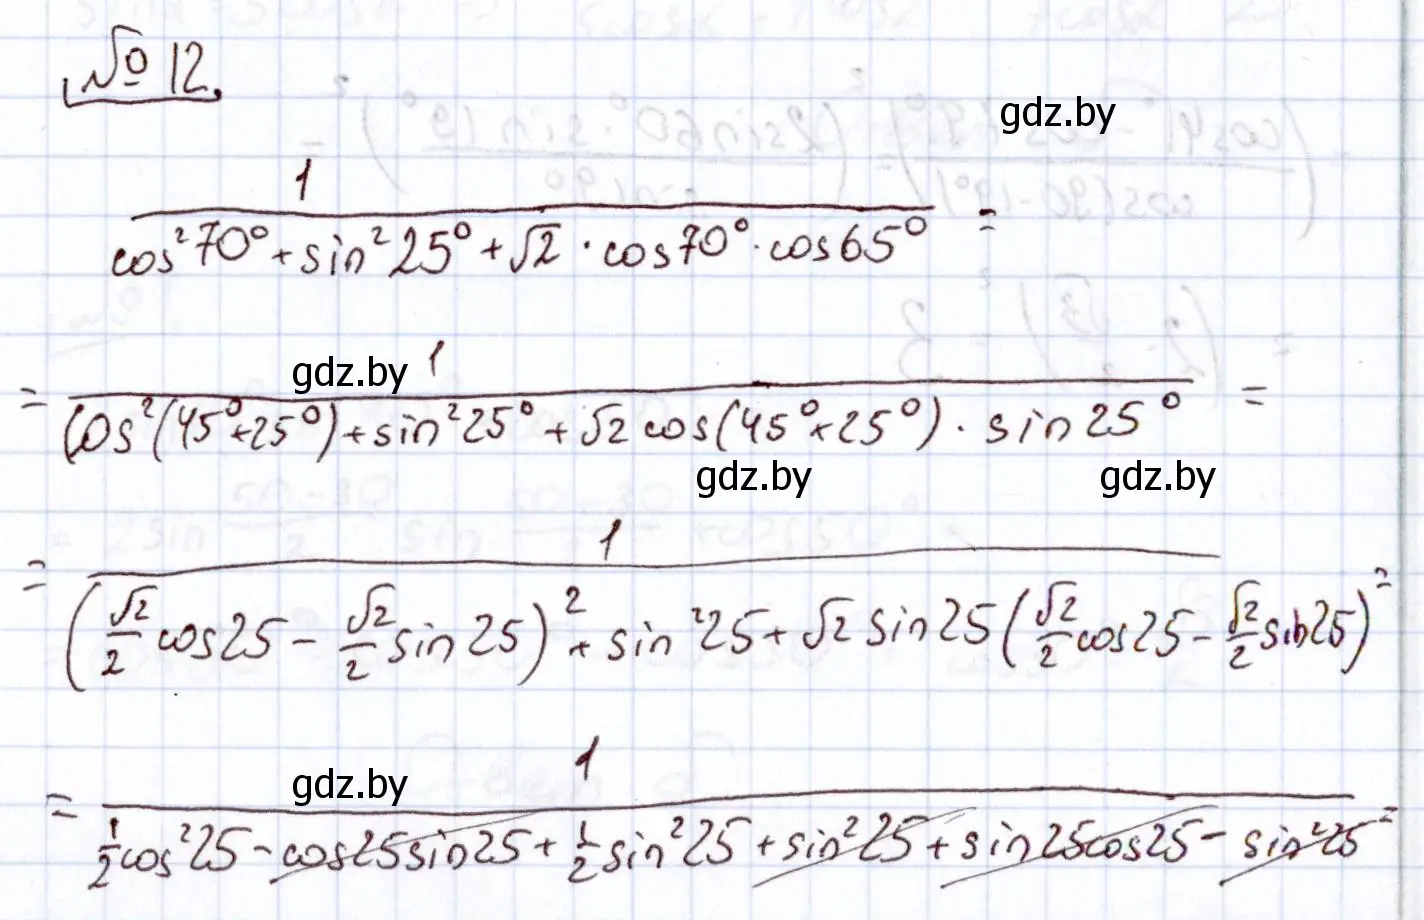 № 12.
gdz.by
1
cos²70° + sin²25° + √2 · cos70° · cos65° =
gdz.by 1
= cos²(45°+25°) + sin²25° + √2 cos(45°+25°) · sin25° =
gdz.by gdz.by
1
= (√2/2 cos25 - √2/2 sin25)² + sin²25 + √2 sin25 (√2/2 cos25 - √2/2 sin25) =
gdz.by 1
= 1/2 cos²25 - cos25 sin25 + 1/2 sin²25 + sin²25 + sin25cos25 - sin²25 =